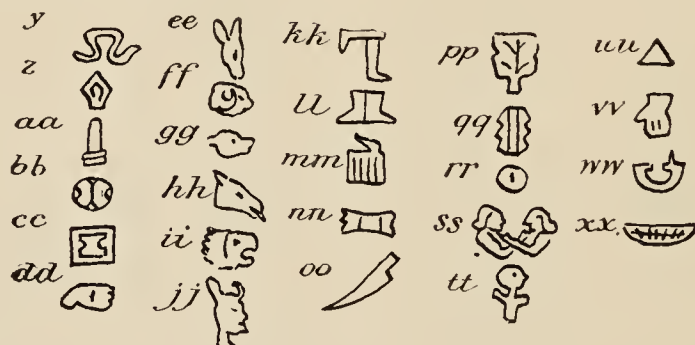 y
z
aa
bb
cc
dd
ee
ff
gg
hh
ii
jj
kk
ll
mm
nn
oo
pp
qq
rr
ss
tt
uu
vv
ww
xx.